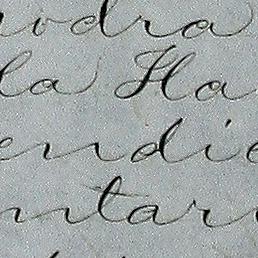 odra
la Ha
endie
ntar